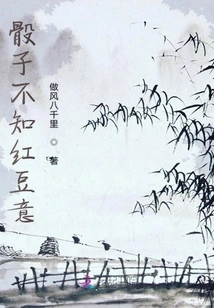 骰子不知红豆意
做风八千里
◎著